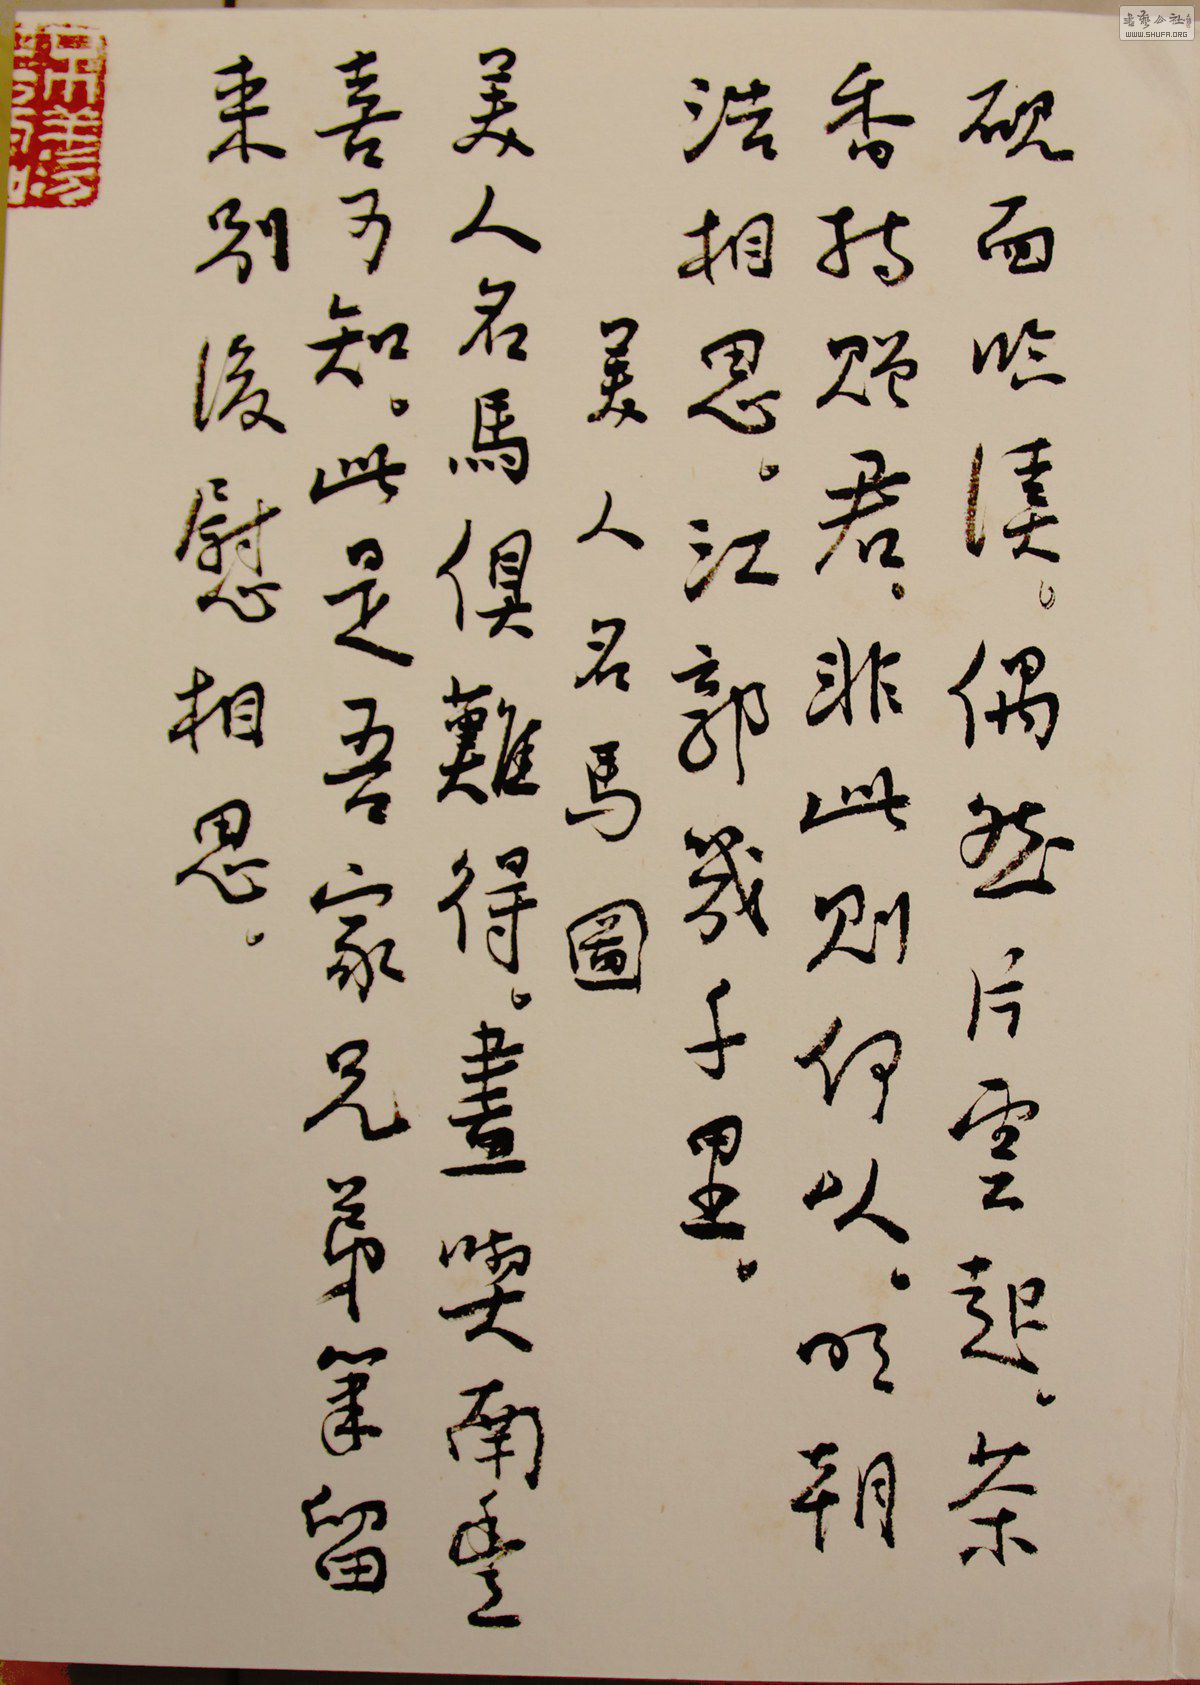 硯面吟。偶然片雲起。茶
香持贈君。非此則何以。明朝
浩相思。江郭幾千里。
美人名馬圖
美人名馬俱難得。畫喫南
喜可知。此是吾家兄弟筆留
來別後慰相思。
書藝公社
WWW.SHUFA.ORG